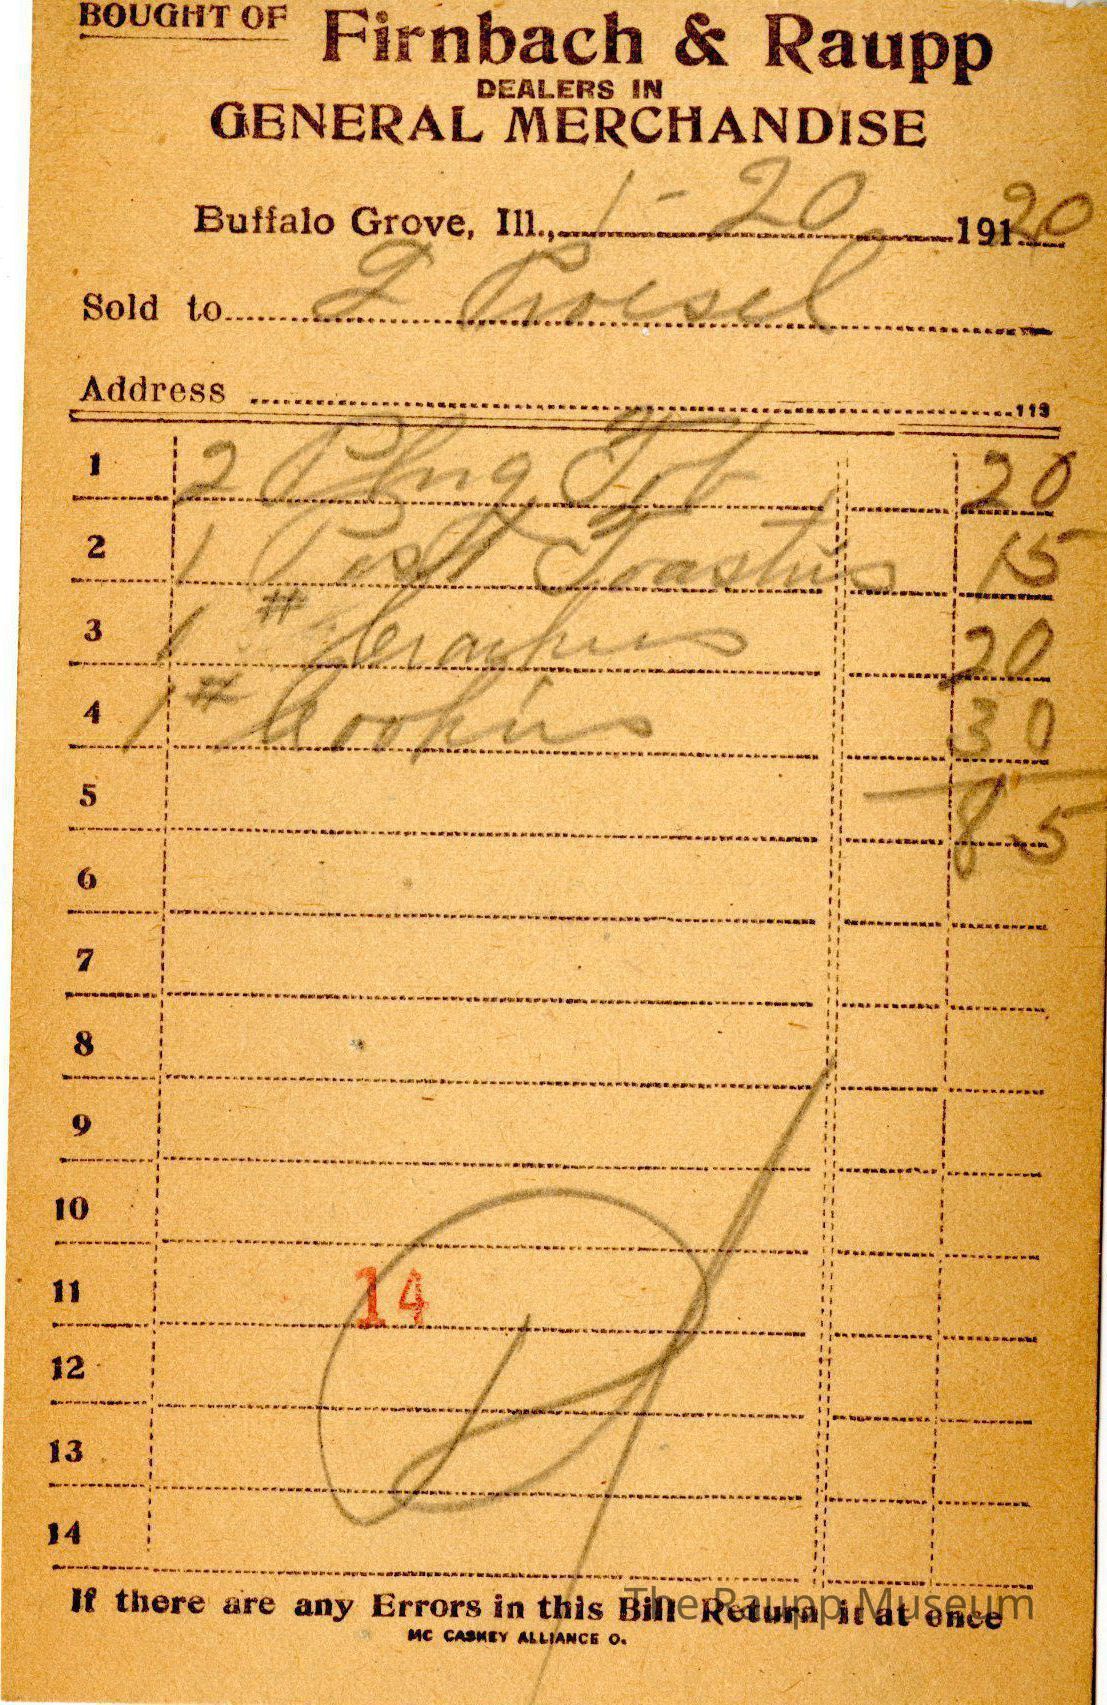 BOUGHT OF
Firnbach & Raupp
DEALERS IN
GENERAL MERCHANDISE
Buffalo Grove, Ill., 1-20 191 20
Sold to Proesel
Address 113
1 2 Pkng Tob 20
2 1 Post Toasties 15
3 1 # Crackers 20
4 1 # Cookies 30
5 85
6
7
8
9
10
11 14
12
13
14
If there are any Errors in this Bill Return it at once
The Raupp Museum
MC CASKEY ALLIANCE O.